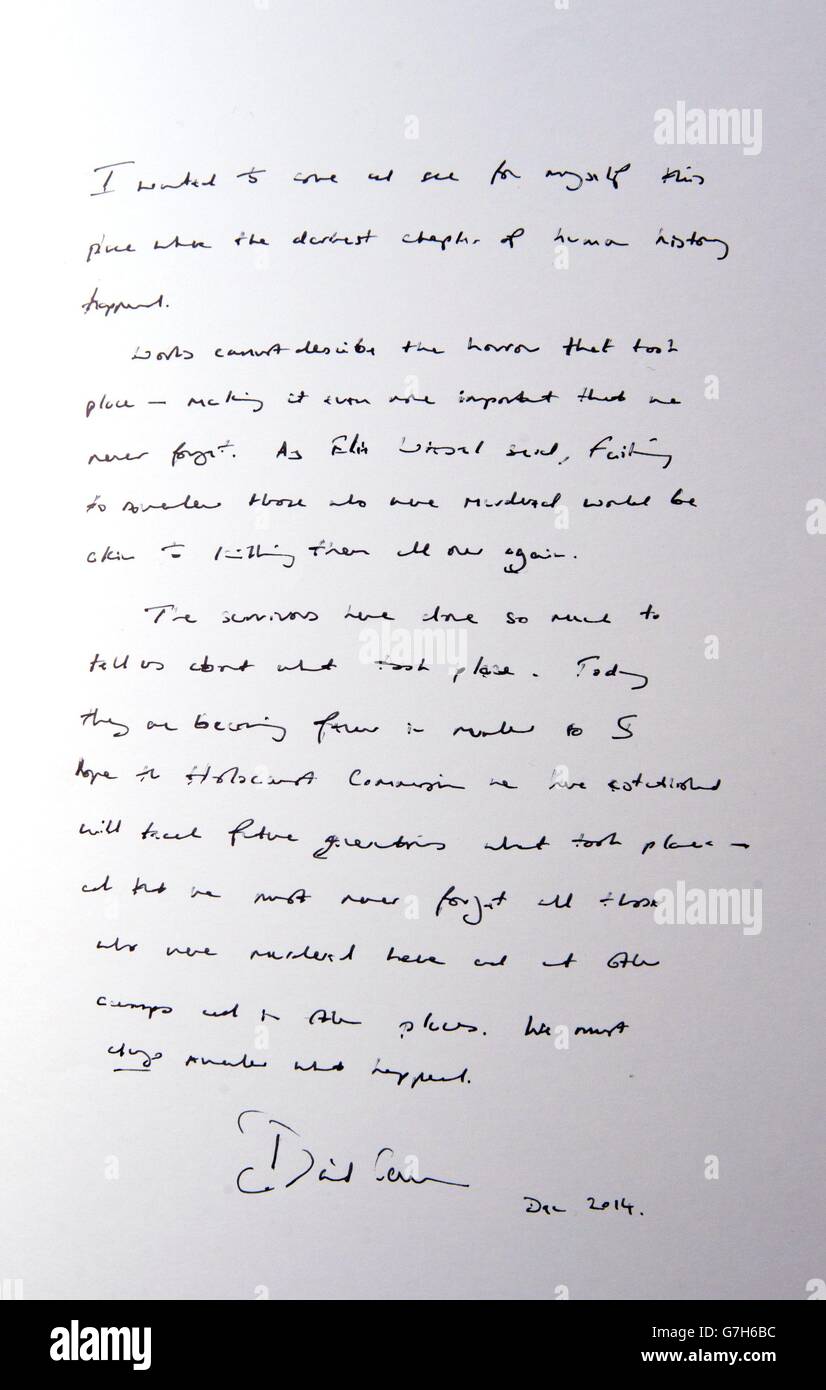 I wanted to come and see for myself this
place where the darkest chapter of human history
happened.
Words cannot describe the horror that took
place — making it even more important that we
never forget. As Elie Wiesel said, failing
to remember those who were murdered would be
akin to killing them all over again.
The survivors have done so much to
tell us about what took place. Today
they are becoming fewer in number so I
hope the Holocaust Commission we have established
will teach future generations what took place —
and that we must never forget all those
who were murdered here and at other
camps and in other places. We must
always remember what happened.
David Cameron
Dec 2014.
alamy
alamy
alamy
a
a
a
a
a
a
a
a
alamy
Image ID: G7H6BC
www.alamy.com